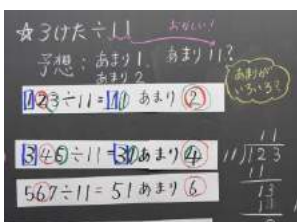 ☆3けた÷11
おかしい!
予想:あまり1. あまり11?
あまり2
あまりが
いろいろ?
123÷11=11 あまり 2
345÷11=31 あまり 4
567÷11=51 あまり 6
11
11)123
11
13
11